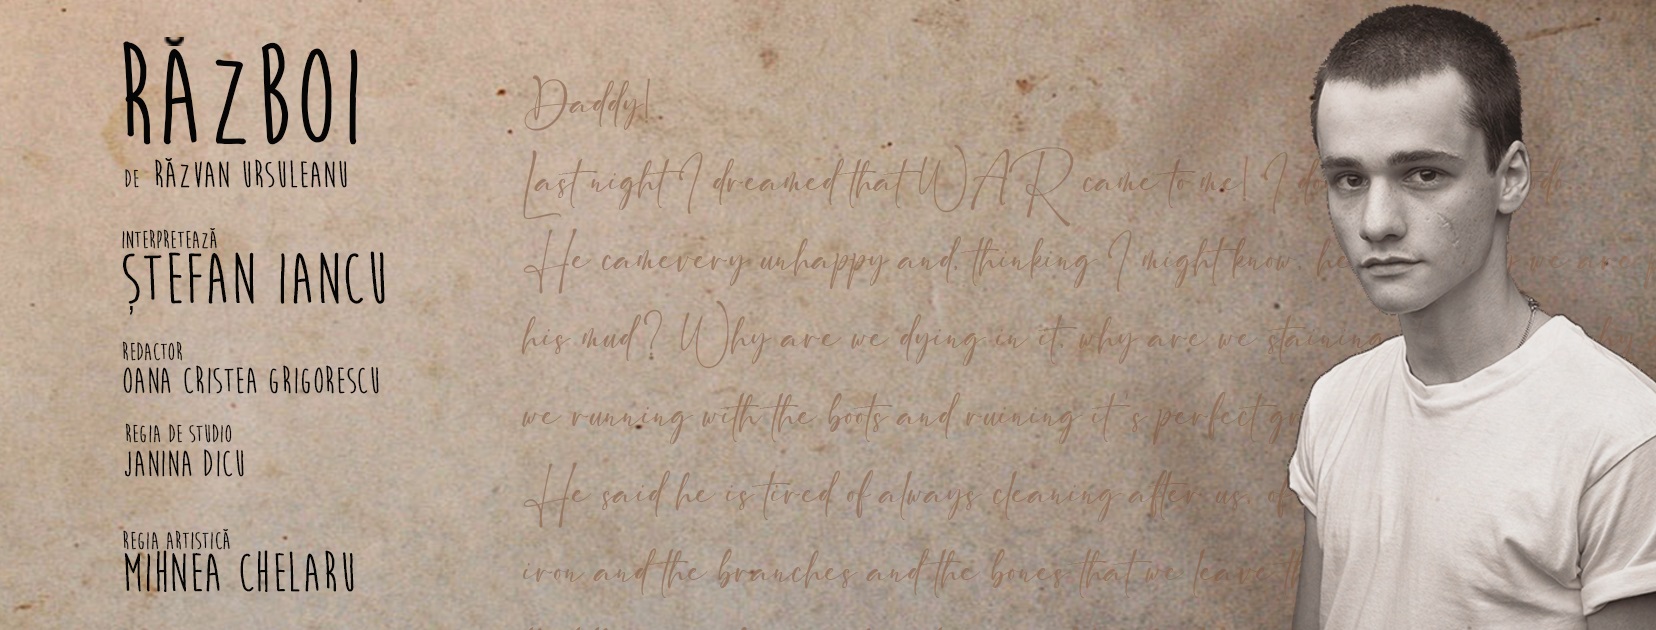 RĂZBOI
DE RĂZVAN URSULEANU
INTERPRETEAZĂ
ȘTEFAN IANCU
REDACTOR
OANA CRISTEA GRIGORESCU
REGIA DE STUDIO
JANINA DICU
REGIA ARTISTICĂ
MIHNEA CHELARU
Daddy!
Last night I dreamed that WAR came to me! I
He camevery unhappy and, thinking I might know, he we are
his mud? Why are we dying in it, why are we staining
we running with the boots and ruining it's perfect
He said he is tired of always cleaning after us, of
iron and the branches and the bones that we leave